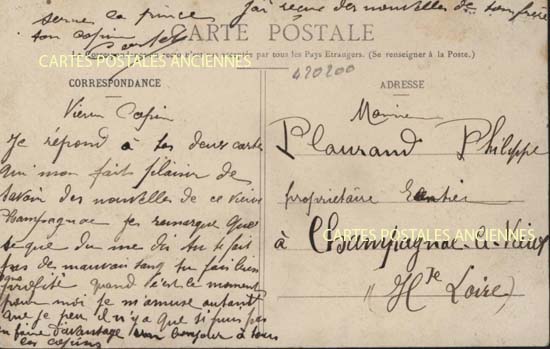 serre la pince
ton copin
j'ai reçue des nouvelles de ton frère
CARTE POSTALE
La Correspondance n'est pas acceptée par tous les Pays Etrangers. (Se renseigner à la Poste.)
CARTES POSTALES ANCIENNES
420200
CORRESPONDANCE
Vieux Copin
Je répond à tes deux cartes
qui mon fait plaisir de
savoir des nouvelles de ce vieux
Champagnac je remarque que
ce que du me dit tu te fait
pas de mauvais sang tu fai bien
profité quand c'est le moment
pour moi je m'amuse autant
que je peu il n'y a que si puis pas
en faire d'avantage bonjour à tous
les copins
ADRESSE
Plaurand Philippe
propriétaire Rentier
à Champagnac-le-Vieux
CARTES POSTALES ANCIENNES
(Hte Loire)